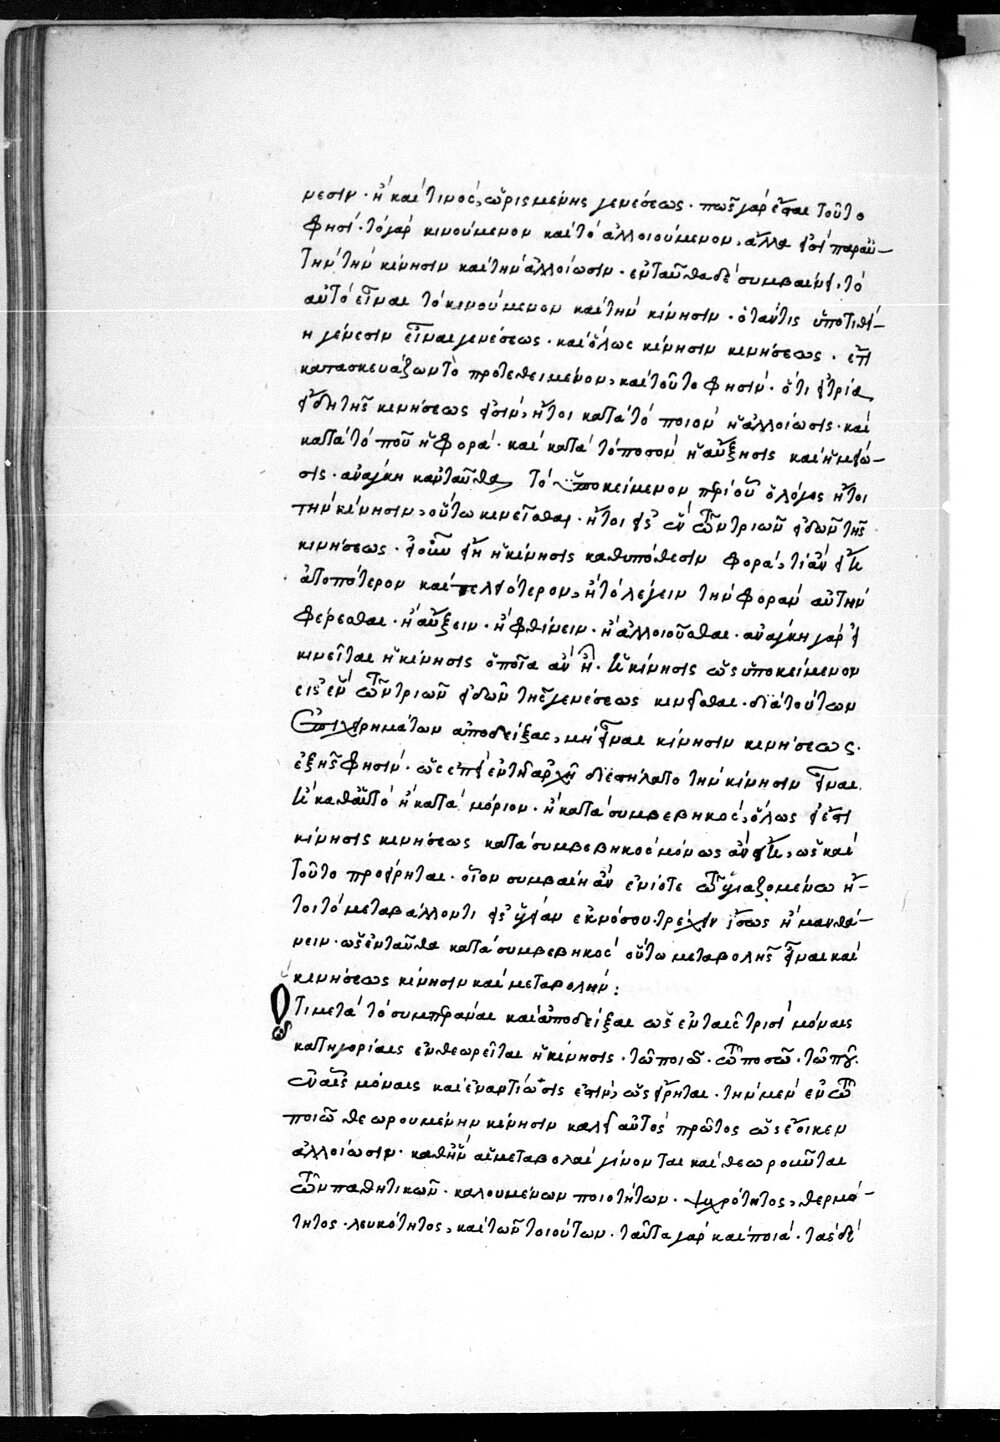 νεσιν· ἢ καί τινος ὡρισμένης γενέσεως· πῶς γὰρ ἔσται τοῦτο
φησί· τὸ γὰρ κινούμενον καὶ τὸ ἀλλοιούμενον, ἄλλα εἰσὶ παρ' αὐ-
τὴν τὴν κίνησιν καὶ τὴν ἀλλοίωσιν· ἐνταῦθα δὲ συμβαίνει, τὸ
αὐτὸ εἶναι τὸ κινούμενον καὶ τὴν κίνησιν· ὅταν τις ὑποτιθῇ-
η γένεσιν εἶναι γενέσεως· καὶ ὅλως κίνησιν κινήσεως· ἔτι
κατασκευάζων τὸ προτεθειμένον, καὶ τοῦτο φησίν· ὅτι εἰ τρία
εἴδη τῆς κινήσεως εἰσίν, ἤτοι κατὰ τὸ ποιὸν ἡ ἀλλοίωσις· καὶ
κατὰ τὸ ποῦ ἡ φορά· καὶ κατὰ τὸ ποσὸν ἡ αὔξησις καὶ ἡ μείω-
σις· ἀνάγκη κἀνταῦθα τὸ ὑποκείμενον περὶ οὗ ὁ λόγος ἤτοι
τὴν κίνησιν, οὕτω κινεῖσθαι· ἤτοι εἰς ἓν τῶν τριῶν εἰδῶν τῆς
κινήσεως· εἰ οὖν εἴη ἡ κίνησις καθ' ὑπόθεσιν φορά, τί ἂν εἴη
ἀτοπώτερον καὶ γελοιότερον, ἢ τὸ λέγειν τὴν φορὰν αὐτὴν
φέρεσθαι· ἢ αὔξειν· ἢ φθίνειν· ἢ ἀλλοιοῦσθαι· ἀνάγκη γὰρ εἰ
κινεῖται ἡ κίνησις ὁποία ἂν ᾖ· ἡ κίνησις ὡς ὑποκείμενον
εἰς ἓν τῶν τριῶν εἰδῶν τῆς γενέσεως κινεῖσθαι· διὰ τούτων
ἐπιχειρημάτων ἀποδείξας, μὴ εἶναι κίνησιν κινήσεως·
ἑξῆς φησίν· ὡς ἐπεὶ ἐν τῇ ἀρχῇ διεστήλατο τὴν κίνησιν εἶναι
ἢ καθ' αὑτό ἢ κατὰ μόριον· ἢ κατὰ συμβεβηκός, ὅλως εἰ ἔστι
κίνησις κινήσεως κατὰ συμβεβηκὸς μόνως ἂν εἴη, ὡς καὶ
τοῦτο προείρηται· οἷον συμβαίη ἂν ἐνίοτε τῷ ὑγιαζομένω ἤ-
τοι τὸ μεταβάλλοντι εἰς ὑγείαν ἐκ νόσου· τρέχειν ἴσως ἢ μανθά-
νειν· ὡς ἐνταῦθα κατὰ συμβεβηκὸς οὕτω μεταβολῆς εἶναι καὶ
κινήσεως κίνησιν καὶ μεταβολήν:
Ὅτι μετὰ τὸ συμπερᾶναι καὶ ἀποδεῖξαι ὡς ἐν ταῖς τρισὶ μόναις
κατηγορίαις ἐνθεωρεῖται ἡ κίνησις· τῷ ποιῷ· τῷ ποσῷ· τῷ ποῦ·
ἐν αἷς μόναις καὶ ἐναντίωσις ἐστίν, ὡς εἴρηται· τὴν μὲν ἐν τῷ
ποιῷ θεωρουμένην κίνησιν καλεῖ αὐτὸς πρῶτος ὡς ἔοικεν
ἀλλοίωσιν· καθ' ἣν αἱ μεταβολαὶ γίνονται καὶ θεωροῦνται
τῶν παθητικῶν· καλουμένων ποιοτήτων· ψυχρότητος, θερμό-
τητος· λευκότητος, καὶ τῶν τοιούτων· ταῦτα γὰρ καὶ ποιά· τὰς δὲ